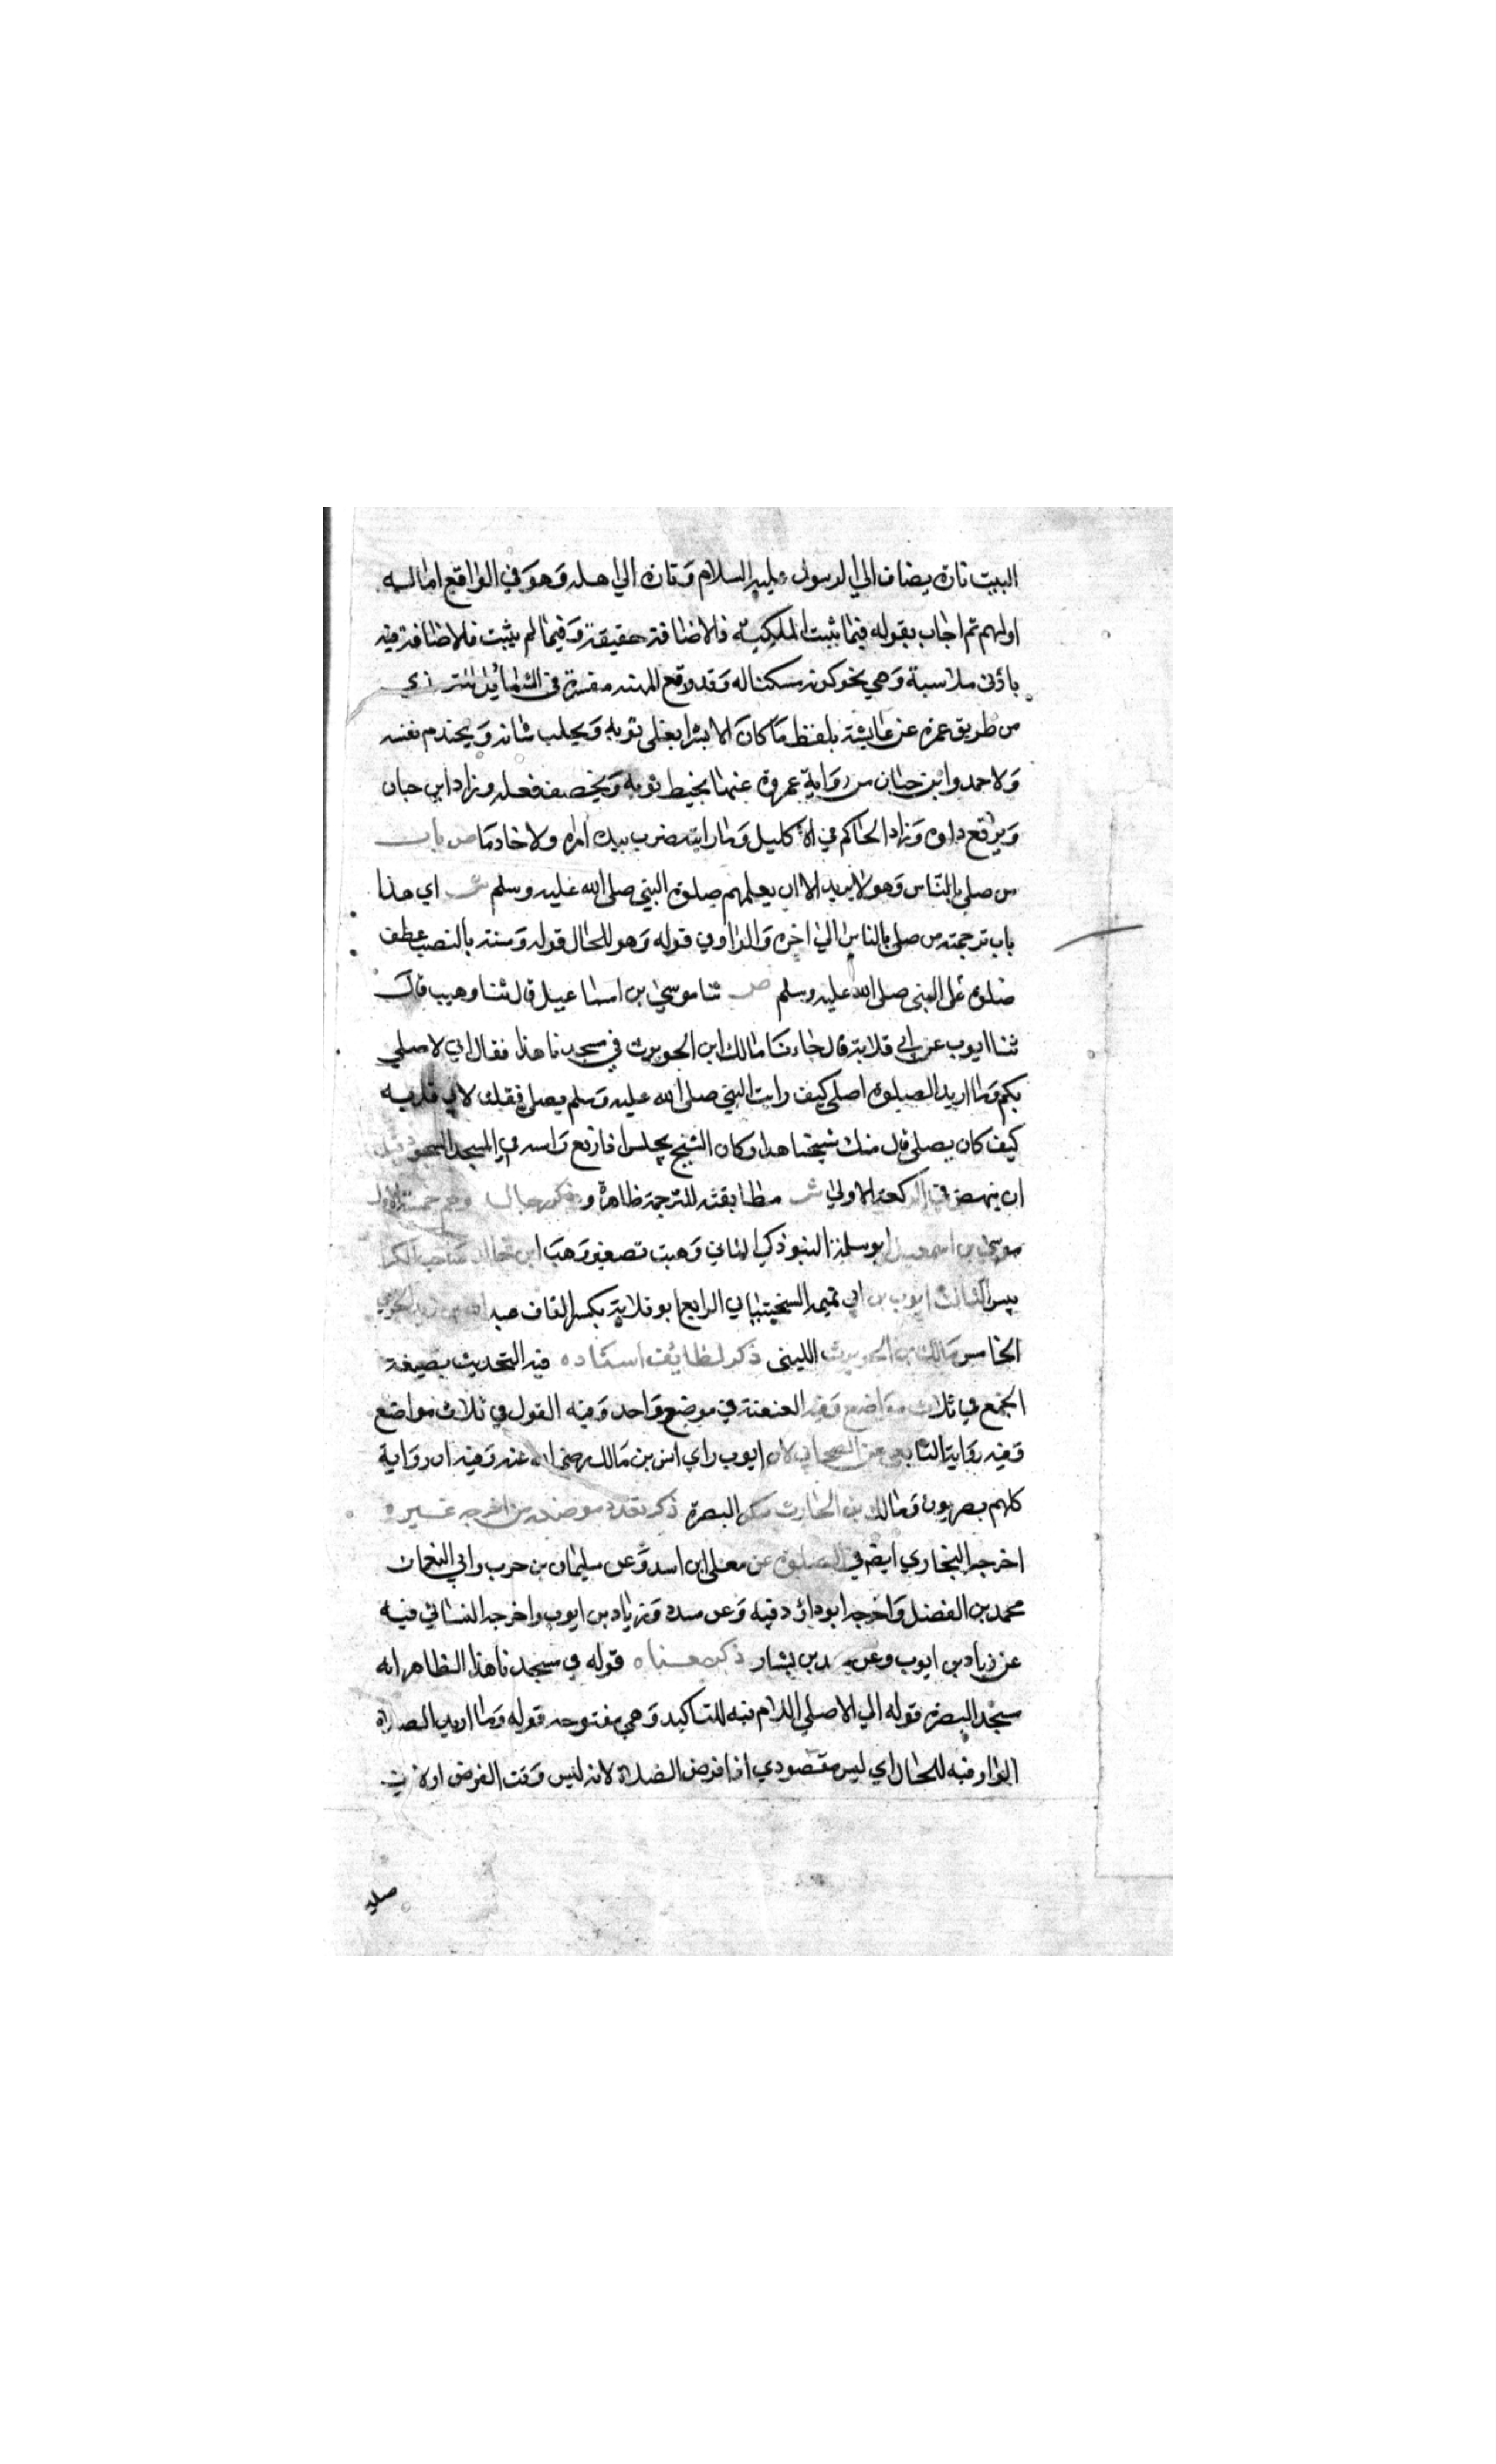 البيت تارة يضاف الي الرسول عليه السلام وَتارة الي اهله وَهوَ في الواقع اما له
اولهم ثم اجاب بقوله فيما ثبت الملكية فالاضافة حقيقة وَفيما لم يثبت فالاضافة فيه
بادٔنى ملابسة وَهي نحو كونه مسكنا له وَقد وقع المهنه مفسرة في الشمائل للترمذي
من طريق عمرة عن عايشة بلفظ مَا كانَ الا بشرا يفلى ثوبه وَيحلب شاته وَيخدم نفسه
وَلاحمد وابن حبان من روَاية عروة عنها يخيط ثوبه وَيخصف نعله وزاد ابن حبان
وَيرقع دلوه وَزاد الحاكم في الاكليل وَما رايته ضرب بيده امراه ولا خادمَا ص باب
من صلى بالناس وَهو لا يريد الا ان يعلمهم صلوة النبي صلى الله عليه وسلم ش اي هذا
باب ترجمته من صلى بالناس الي اخره وَالواو في قوله وَهو للحال قوله وَسنته بالنصب عطف
صلوة على النبي صلى الله عليه وسلم ص ثنا موسى بن اسماعيل قال ثنا وهيب قال
ثنا ايوب عن ابي قلابة قال جاءنَا مالك ابن الحويرث في مسجدنا هذا فقال اني لاصلي
بكم وَما اريد الصلوة اصلي كيف رايت النبي صلى الله عليه وَسلم يصلي فقلت لابي قلابه
كيف كان يصلي قال مثل شيخنا هذا وكان الشيخ يجلس اذا رفع رَاسه في المسجد السجود قبل
ان ينهض في الركعة الاولى ش مطابقته للترجمة ظاهرة وذكر رجاله وهم خمسة الاول
موسى بن اسمعيل ابو سلمة التبوذكي الثاني وَهيب تصغير وَهب ابن خالد صَاحب الكرا
بيس الثالث ايوب بن ابي تميمه السختياني الرابع ابو قلابة بكسر القاف عبد الله بن زيد الجرمي
الخامس مَالك بن الحويرث الليثى ذكر لطايف اسناده فيه التحديث بصيغة
الجمع في ثلاث موَاضع وَفيه العنعنة في موضع وَاحد وَفيه القول في ثلاث مواضع
وَفيه روَاية التابعي عن الصحابي لان ايوب راي انس بن مَالك رضي الله عنه وَفيه ان روَاية
كلهم بصريون وَمالك بن الحارث سكن البصرة ذكر تعدد موضعه ومن اخرجه غيره
اخرجه البخاري ايضم في الصلوة عن معلى ابن اسد وَعن سليمان بن حرب وابي النعمان
محمد بن الفضل وَاخرجه ابو داوٗد فيه وَعن مسدد وَزياد بن ايوب واخرجه النسائي فيه
عن زياد بن ايوب وعن محمد بن بشار ذكر معناه قوله في مسجدنا هذا الظاهر انه
مسجد البصرة قوله اني لاصلي اللام فيه للتاكيد وَهي مفتوحه قوله وَما اريد الصلاة
الواو فيه للحال اي ليس مقصودي اذا فرض الصلاة لانه ليس وَقت الفرض اولاني
صليه